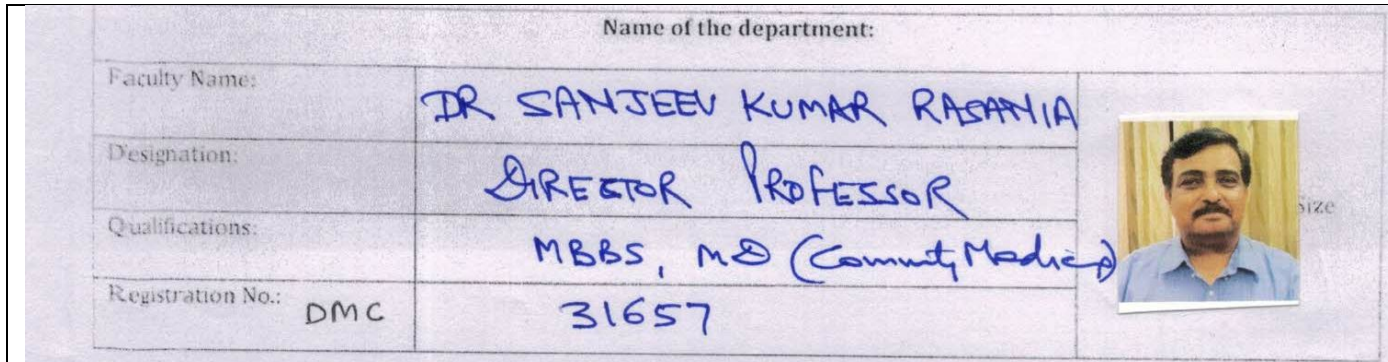 Name of the department:
Faculty Name: DR SANJEEV KUMAR RASANIA
Designation: DIRECTOR PROFESSOR
Size
Qualifications: MBBS, MD (Community Medicine)
Registration No.: DMC 31657